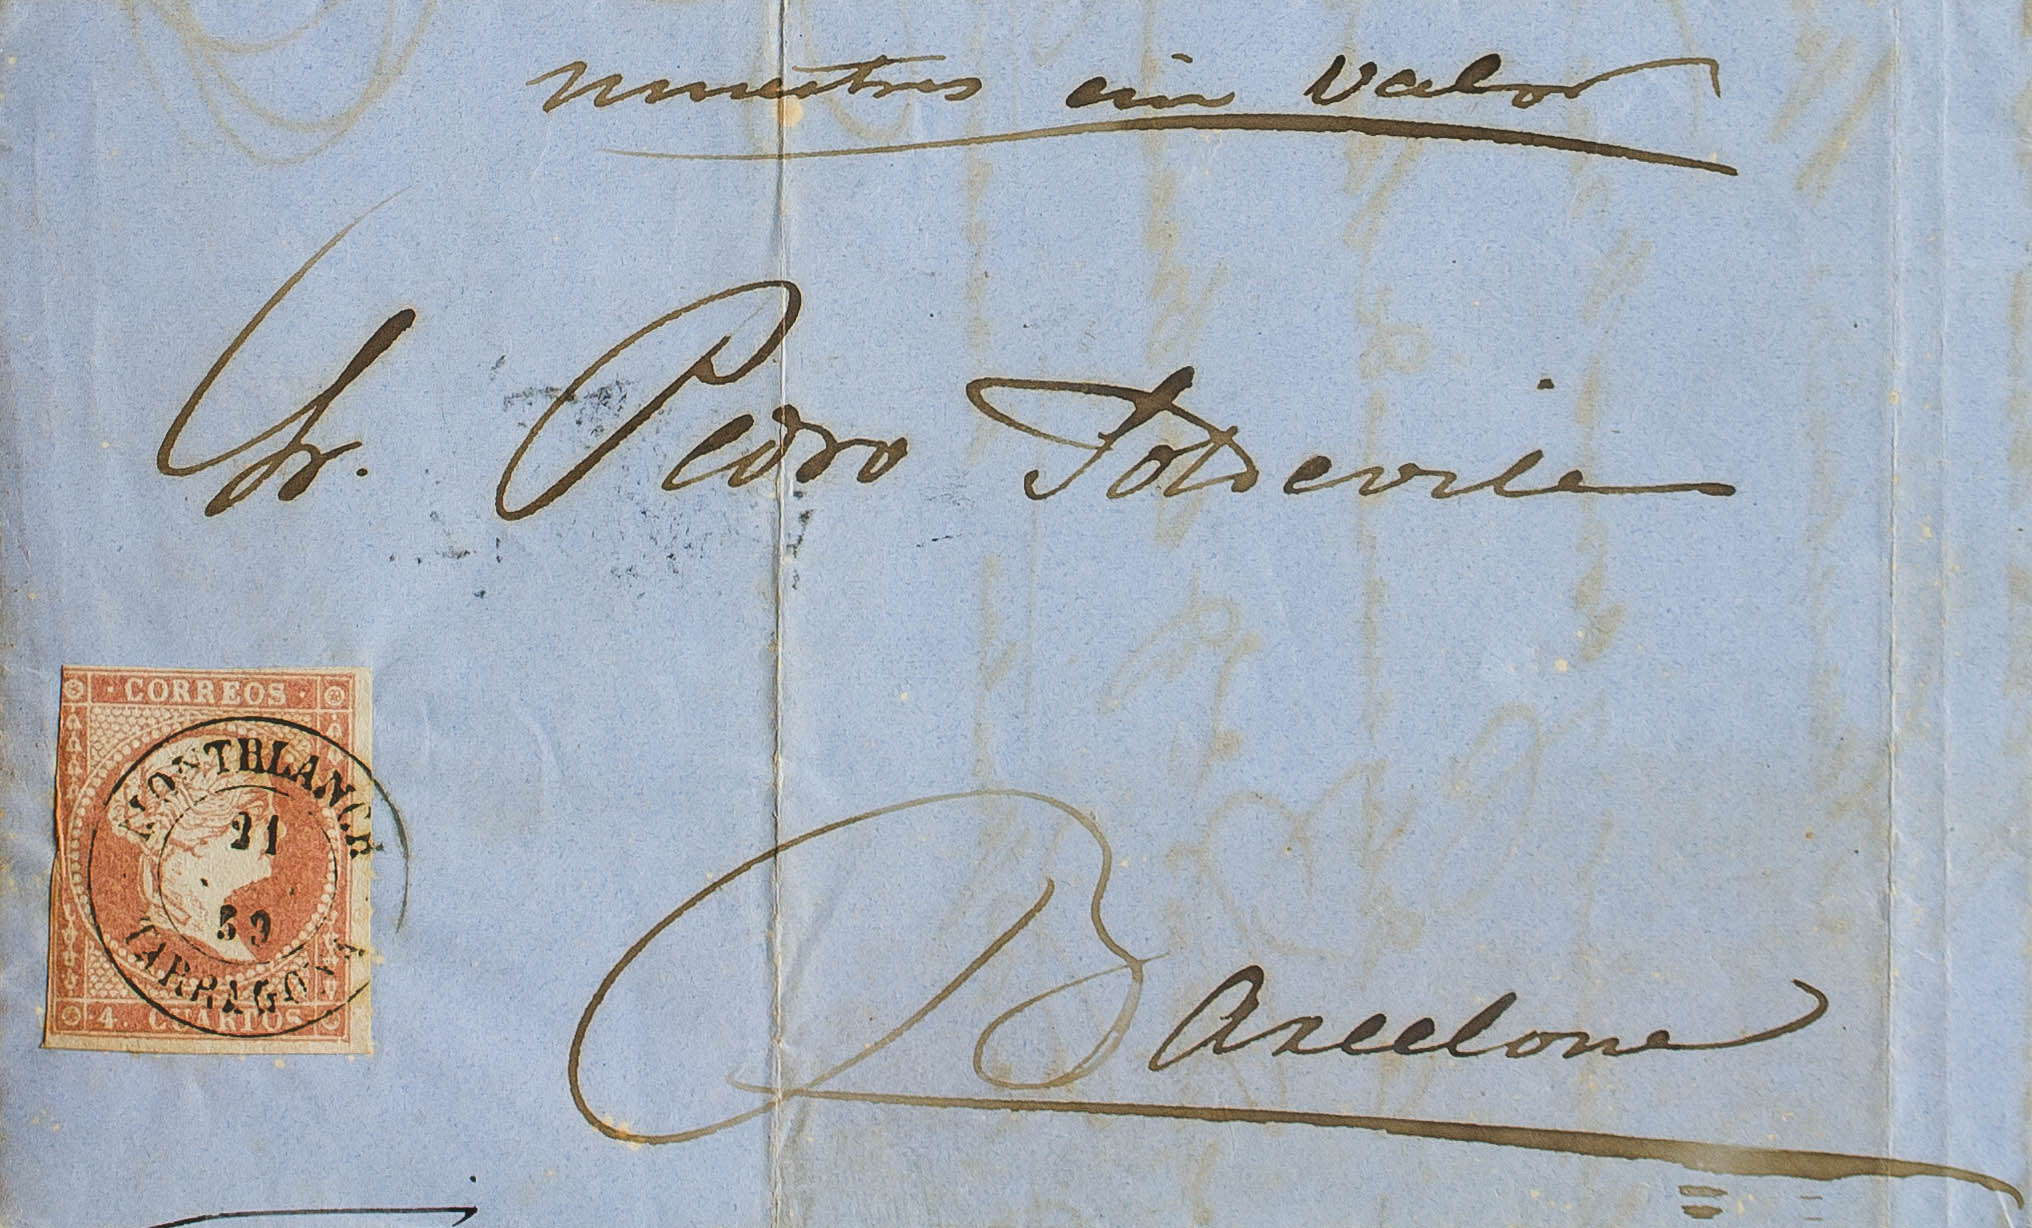 muestras sin valor
Sr. Pedro Soldevila
CORREOS
MONTBLANCH
21
59
TARRAGONA
4. CUARTOS
Barcelona